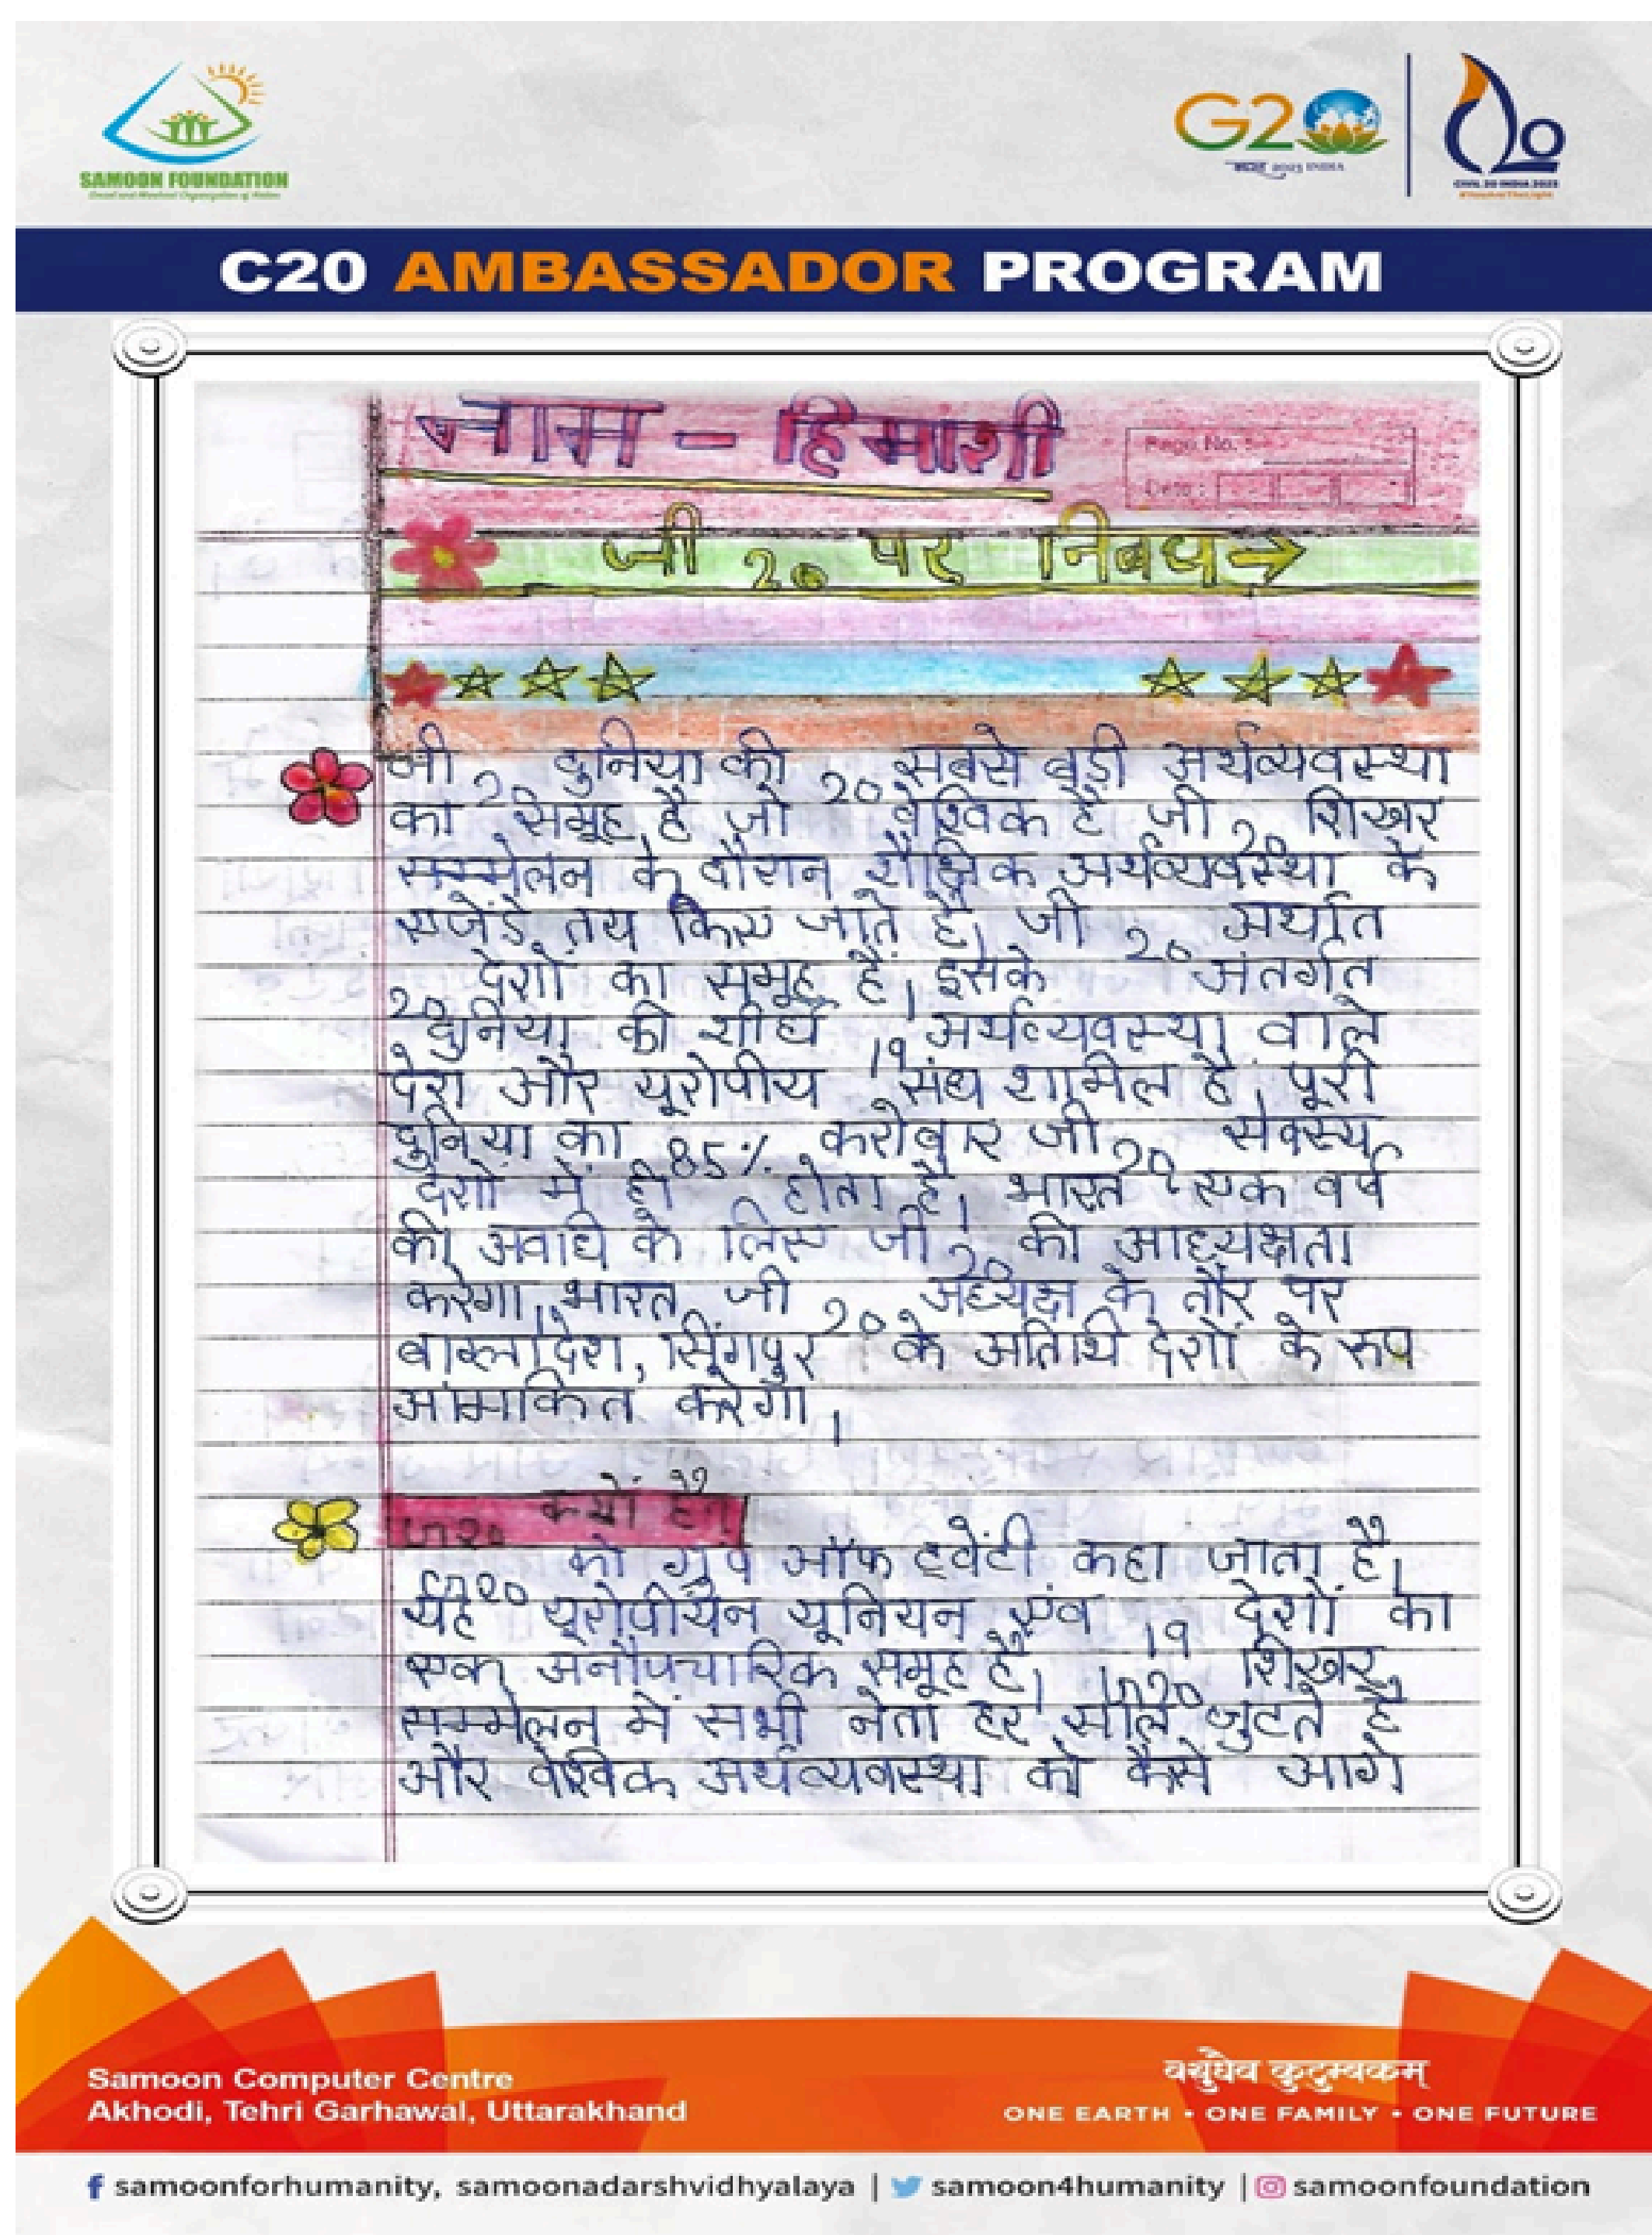 SAMOON FOUNDATION
G20
भारत 2023 INDIA
CIVIL 20 INDIA 2023
C20 AMBASSADOR PROGRAM
नाम - हिमाशी
Page No. :
Date :
जी 20 पर निबध →
जी 20 दुनिया की 20 सबसे बड़ी अर्थव्यवस्था
का समूह है, जो वैश्विक है जी 20 शिखर
सम्मेलन के दौरान शैक्षिक अर्थव्यवस्था के
एजेंडे तय किए जाते है, जी 20 अर्थात
20 देशों का समूह है। इसके अंतर्गत
दुनिया की शीर्ष 19 अर्थव्यवस्था वाले
देश और यूरोपीय संघ शामिल है, पूरी
दुनिया का 85% करोबार जी 20
देशों में ही होता है। भारत एक वर्ष
की अवधि के लिए जी 20 की आध्यक्षता
करेगा, भारत जी 20 अध्यक्ष के तौर पर
सिंगपुर के अतिथि देशों के रूप
करेगा।
G20 क्यों है?
G20 को ग्रुप ऑफ ट्वेंटी कहा जाता है,
यह यूरोपीयन यूनियन एंव 19 देशों का
एक अनौपचारिक समूह है। G20 शिखर
सम्मेलन में सभी नेता हर साल जुटते है
और वेश्विक अर्थव्यवस्था को कैसे आगे
Samoon Computer Centre
Akhodi, Tehri Garhawal, Uttarakhand
वसुधैव कुटुम्बकम्
ONE EARTH • ONE FAMILY • ONE FUTURE
samoonforhumanity, samoonadarshvidhyalaya | samoon4humanity | samoonfoundation